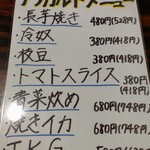 アラカルトメニュー
・長芋焼き 480円(528円)
・冷奴 380円(418円)
・枝豆 380円(418円)
・トマトスライス 380円(418円)
・青菜炒め 680円(748円)
・焼きイカ 680円(748円)
・TKG